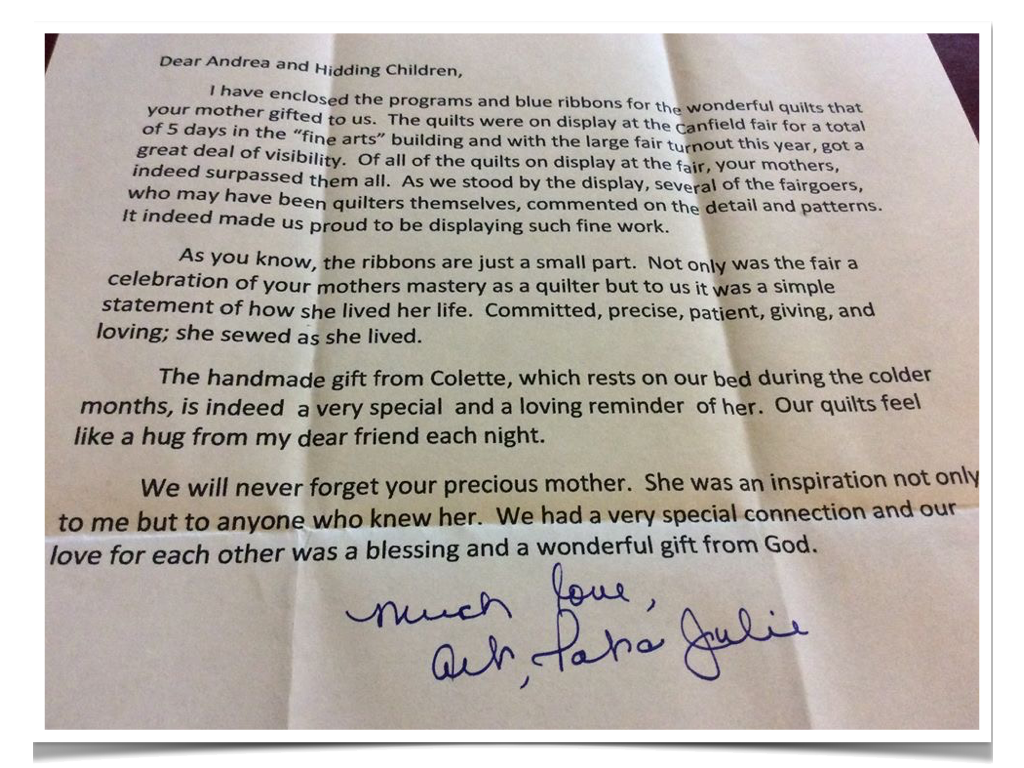 Dear Andrea and Hidding Children,
I have enclosed the programs and blue ribbons for the wonderful quilts that
your mother gifted to us. The quilts were on display at the Canfield fair for a total
of 5 days in the "fine arts" building and with the large fair turnout this year, got a
great deal of visibility. Of all of the quilts on display at the fair, your mothers,
indeed surpassed them all. As we stood by the display, several of the fairgoers,
who may have been quilters themselves, commented on the detail and patterns.
It indeed made us proud to be displaying such fine work.
As you know, the ribbons are just a small part. Not only was the fair a
celebration of your mothers mastery as a quilter but to us it was a simple
statement of how she lived her life. Committed, precise, patient, giving, and
loving; she sewed as she lived.
The handmade gift from Colette, which rests on our bed during the colder
months, is indeed a very special and a loving reminder of her. Our quilts feel
like a hug from my dear friend each night.
We will never forget your precious mother. She was an inspiration not only
to me but to anyone who knew her. We had a very special connection and our
love for each other was a blessing and a wonderful gift from God.
Much love,
Julie